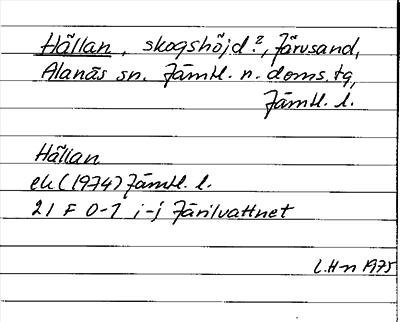 Hällan, skogshöjd?, Järusand,
Alanäs sn. Jämtl. n. doms. tg,
Jämtl. l.
Hällan
ek (1974) Jämtl. l.
21 F 0-1 i-j Järilvattnet
L. H-n 1975